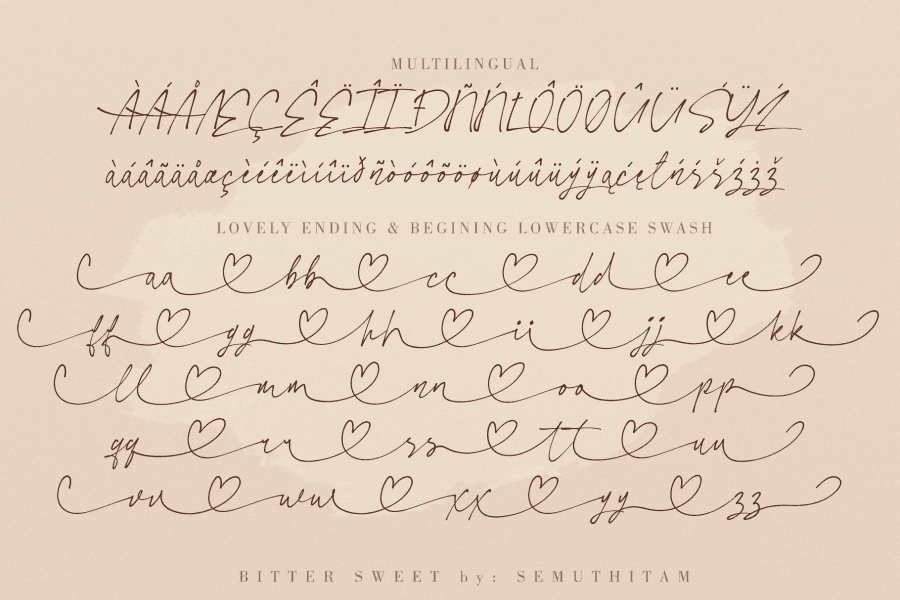 MULTILINGUAL
ÀÁÅÆÇÊËÎÏÐÑŃŁÔÖØÛÜŚŸŹ
àáâãäåæçèéêëìíîïðñòóôõöøùúûüýÿąćęłńśšźżž
LOVELY ENDING & BEGINING LOWERCASE SWASH
aa bb cc dd ee
ff gg hh ii jj kk
ll mm nn oo pp
qq rr ss tt uu
vv ww xx yy zz
BITTER SWEET by: SEMUTHITAM